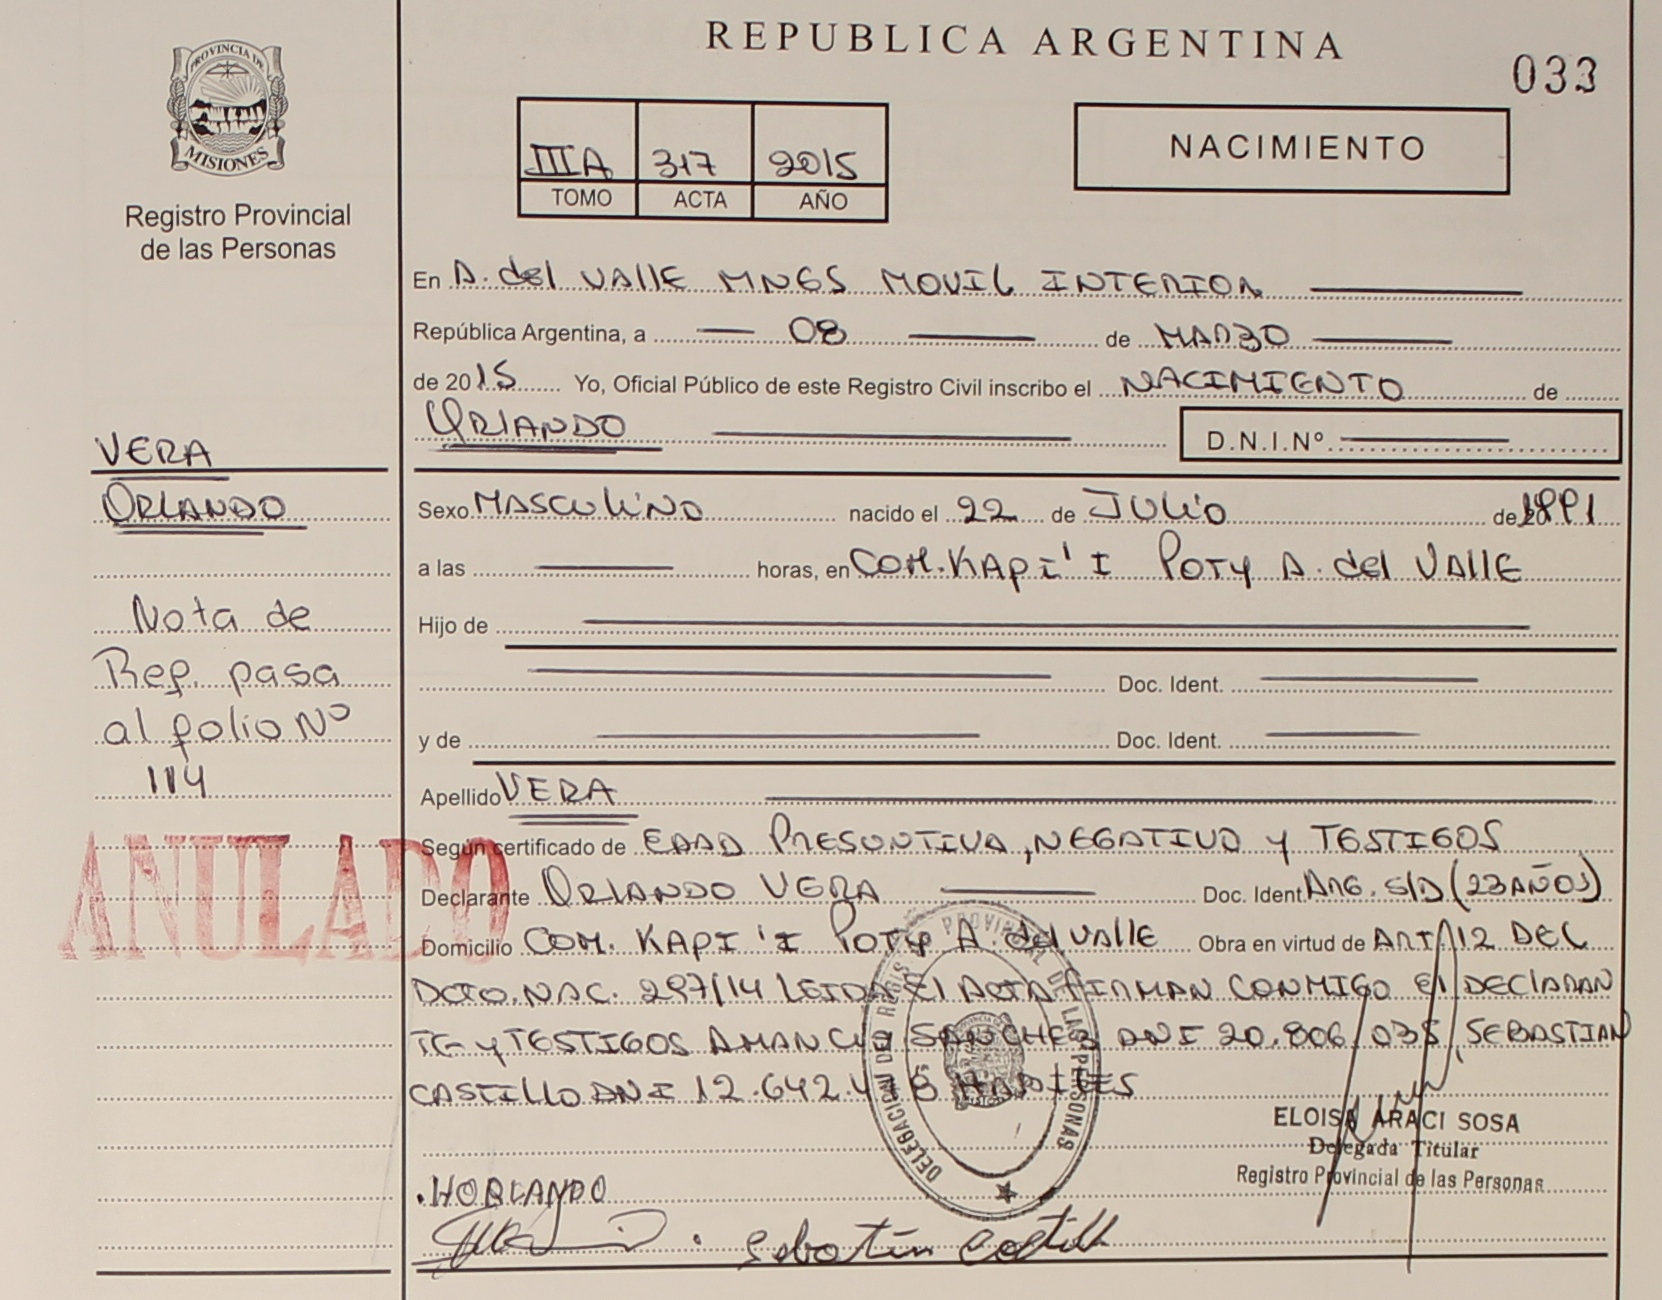 REPUBLICA ARGENTINA
033
PROVINCIA DE
MISIONES
Registro Provincial
de las Personas
IIIA 317 2015
TOMO ACTA AÑO
NACIMIENTO
En A. del VALLE MNES MOVIL INTERIOR
República Argentina, a 08 de MARZO
de 2015 Yo, Oficial Público de este Registro Civil inscribo el NACIMIENTO de
ORLANDO D.N.I.Nº
VERA
ORLANDO
Nota de
Ref. pasa
al folio Nº
114
ANULADO
Sexo MASCULINO nacido el 22 de JULIO de 1991
a las horas, en COM. KAPI'I POTY A. del VALLE
Hijo de
Doc. Ident.
y de Doc. Ident.
Apellido VERA
Según certificado de EDAD PRESUNTIVA, NEGATIVO Y TESTIGOS
Declarante ORLANDO VERA Doc. Ident ARG. S/D (23 AÑOS)
Domicilio COM. KAPI'I POTY A. del VALLE Obra en virtud de ART 12 DEL
DCTO. NAC. 297/14 LEIDA El ACTA FIRMAN CONMIGO El DECLARAN
TE Y TESTIGOS AMANCIO SANCHEZ DNI 20.806.035, SEBASTIAN
CASTILLO DNI 12.642. HABILES
DELEGACION DEL REGISTRO PROVINCIAL DE LAS PERSONAS
ELOISA ARACI SOSA
Delegada Titular
Registro Provincial de las Personas
HORLANDO
Sebatian Castillo